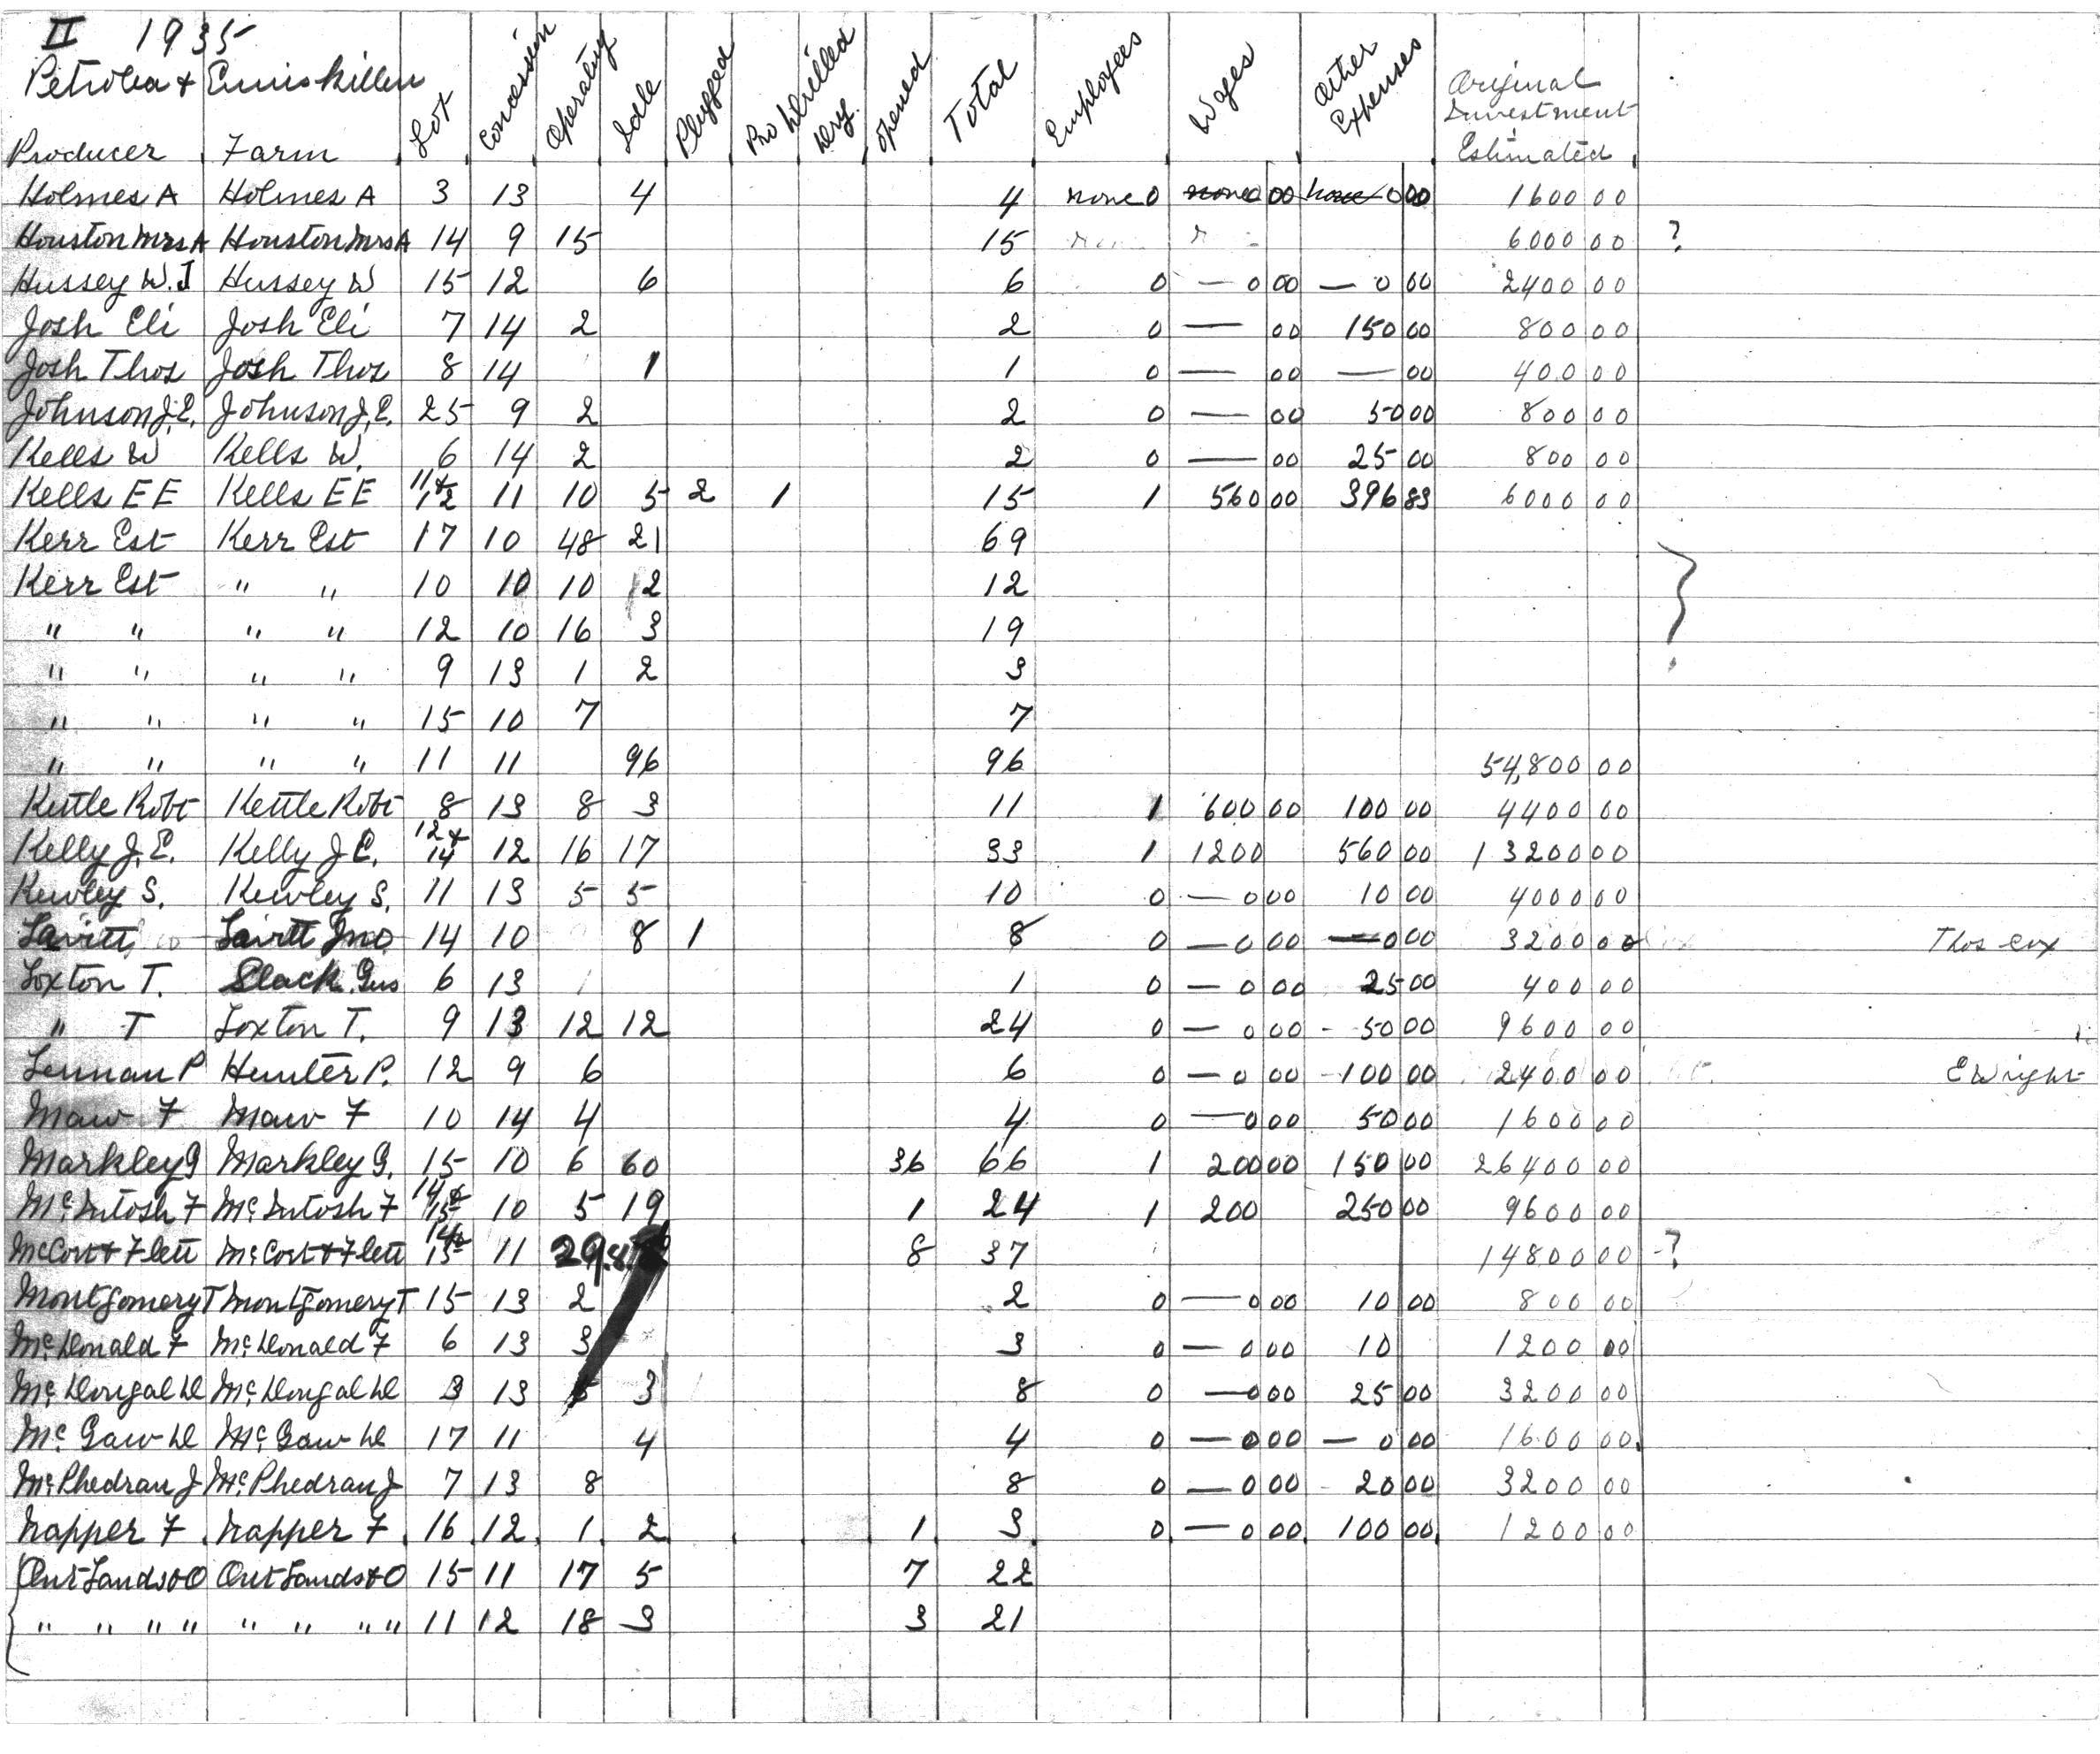 II 1935
Petrolea & Enniskillen
Producer Farm Lot Concession Operating Idle Plugged Pro Drilled Dry. opened Total Employees Wages Other Expenses Original Investment Estimated
Holmes A Holmes A 3 13 4 4 none 0 none 0 00 none 0 00 1600 00
Houston Mrs A Houston Mrs A 14 9 15 15 6000 00 ?
Hussey W. J Hussey W 15 12 6 6 0 — 0 00 — 0 00 2400 00
Josh Eli Josh Eli 7 14 2 2 0 — 00 150 00 800 00
Josh Thos Josh Thos 8 14 1 1 0 — 00 — 00 400 00
Johnson J. E. Johnson J. E. 25 9 2 2 0 — 00 50 00 800 00
Kells W Kells W. 6 14 2 2 0 — 00 25 00 800 00
Kells EE Kells EE 11 & 12 11 10 5 2 1 15 1 560 00 396 83 6000 00
Kerr Est Kerr Est 17 10 48 21 69
Kerr Est " " 10 10 10 2 12
" " " " 12 10 16 3 19
" " " " 9 13 1 2 3
" " " " 15 10 7 7
" " " " 11 11 96 96 54,800 00
Kettle Robt Kettle Robt 8 13 8 3 11 1 600 00 100 00 4400 00
Kelly J. E. Kelly J E. 12 & 14 12 16 17 33 1 1200 560 00 13200 00
Kewley S. Kewley S. 11 13 5 5 10 0 — 0 00 10 00 4000 00
Lavitt Lavitt Jno 14 10 8 1 8 0 — 0 00 — 0 00 3200 00 Thos Cox
Loxton T. Slack Gus 6 13 1 1 0 — 0 00 25 00 400 00
" T Loxton T. 9 13 12 12 24 0 — 0 00 - 50 00 9600 00
Lennan P Hunter P. 12 9 6 6 0 — 0 00 - 100 00 2400 00 E Wright
Maw F Maw F 10 14 4 4 0 — 0 00 50 00 1600 00
Markley G Markley G. 15 10 6 60 36 66 1 200 00 150 00 26400 00
McIntosh F McIntosh F 14 & 15 10 5 19 1 24 1 200 250 00 9600 00
McCort & Flett McCort & Flett 14 & 15 11 29 8 8 37 14800 00 - ?
Montgomery T Montgomery T 15 13 2 2 0 — 0 00 10 00 800 00
McDonald F McDonald F 6 13 3 3 0 — 0 00 10 1200 00
McDougal D McDougal D 3 13 5 3 8 0 — 0 00 25 00 3200 00
McGaw D McGaw D 17 11 4 4 0 — 0 00 — 0 00 1600 00
McPhedran J McPhedran J 7 13 8 8 0 — 0 00 - 20 00 3200 00
Napper F Napper F 16 12 1 2 1 3 0 — 0 00 100 00 1200 00
Ont Lands & O Ont Lands & O 15 11 17 5 7 22
" " " " " " " " 11 12 18 3 3 21